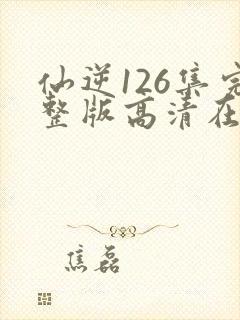 仙逆126集完
整版高清在
焦磊